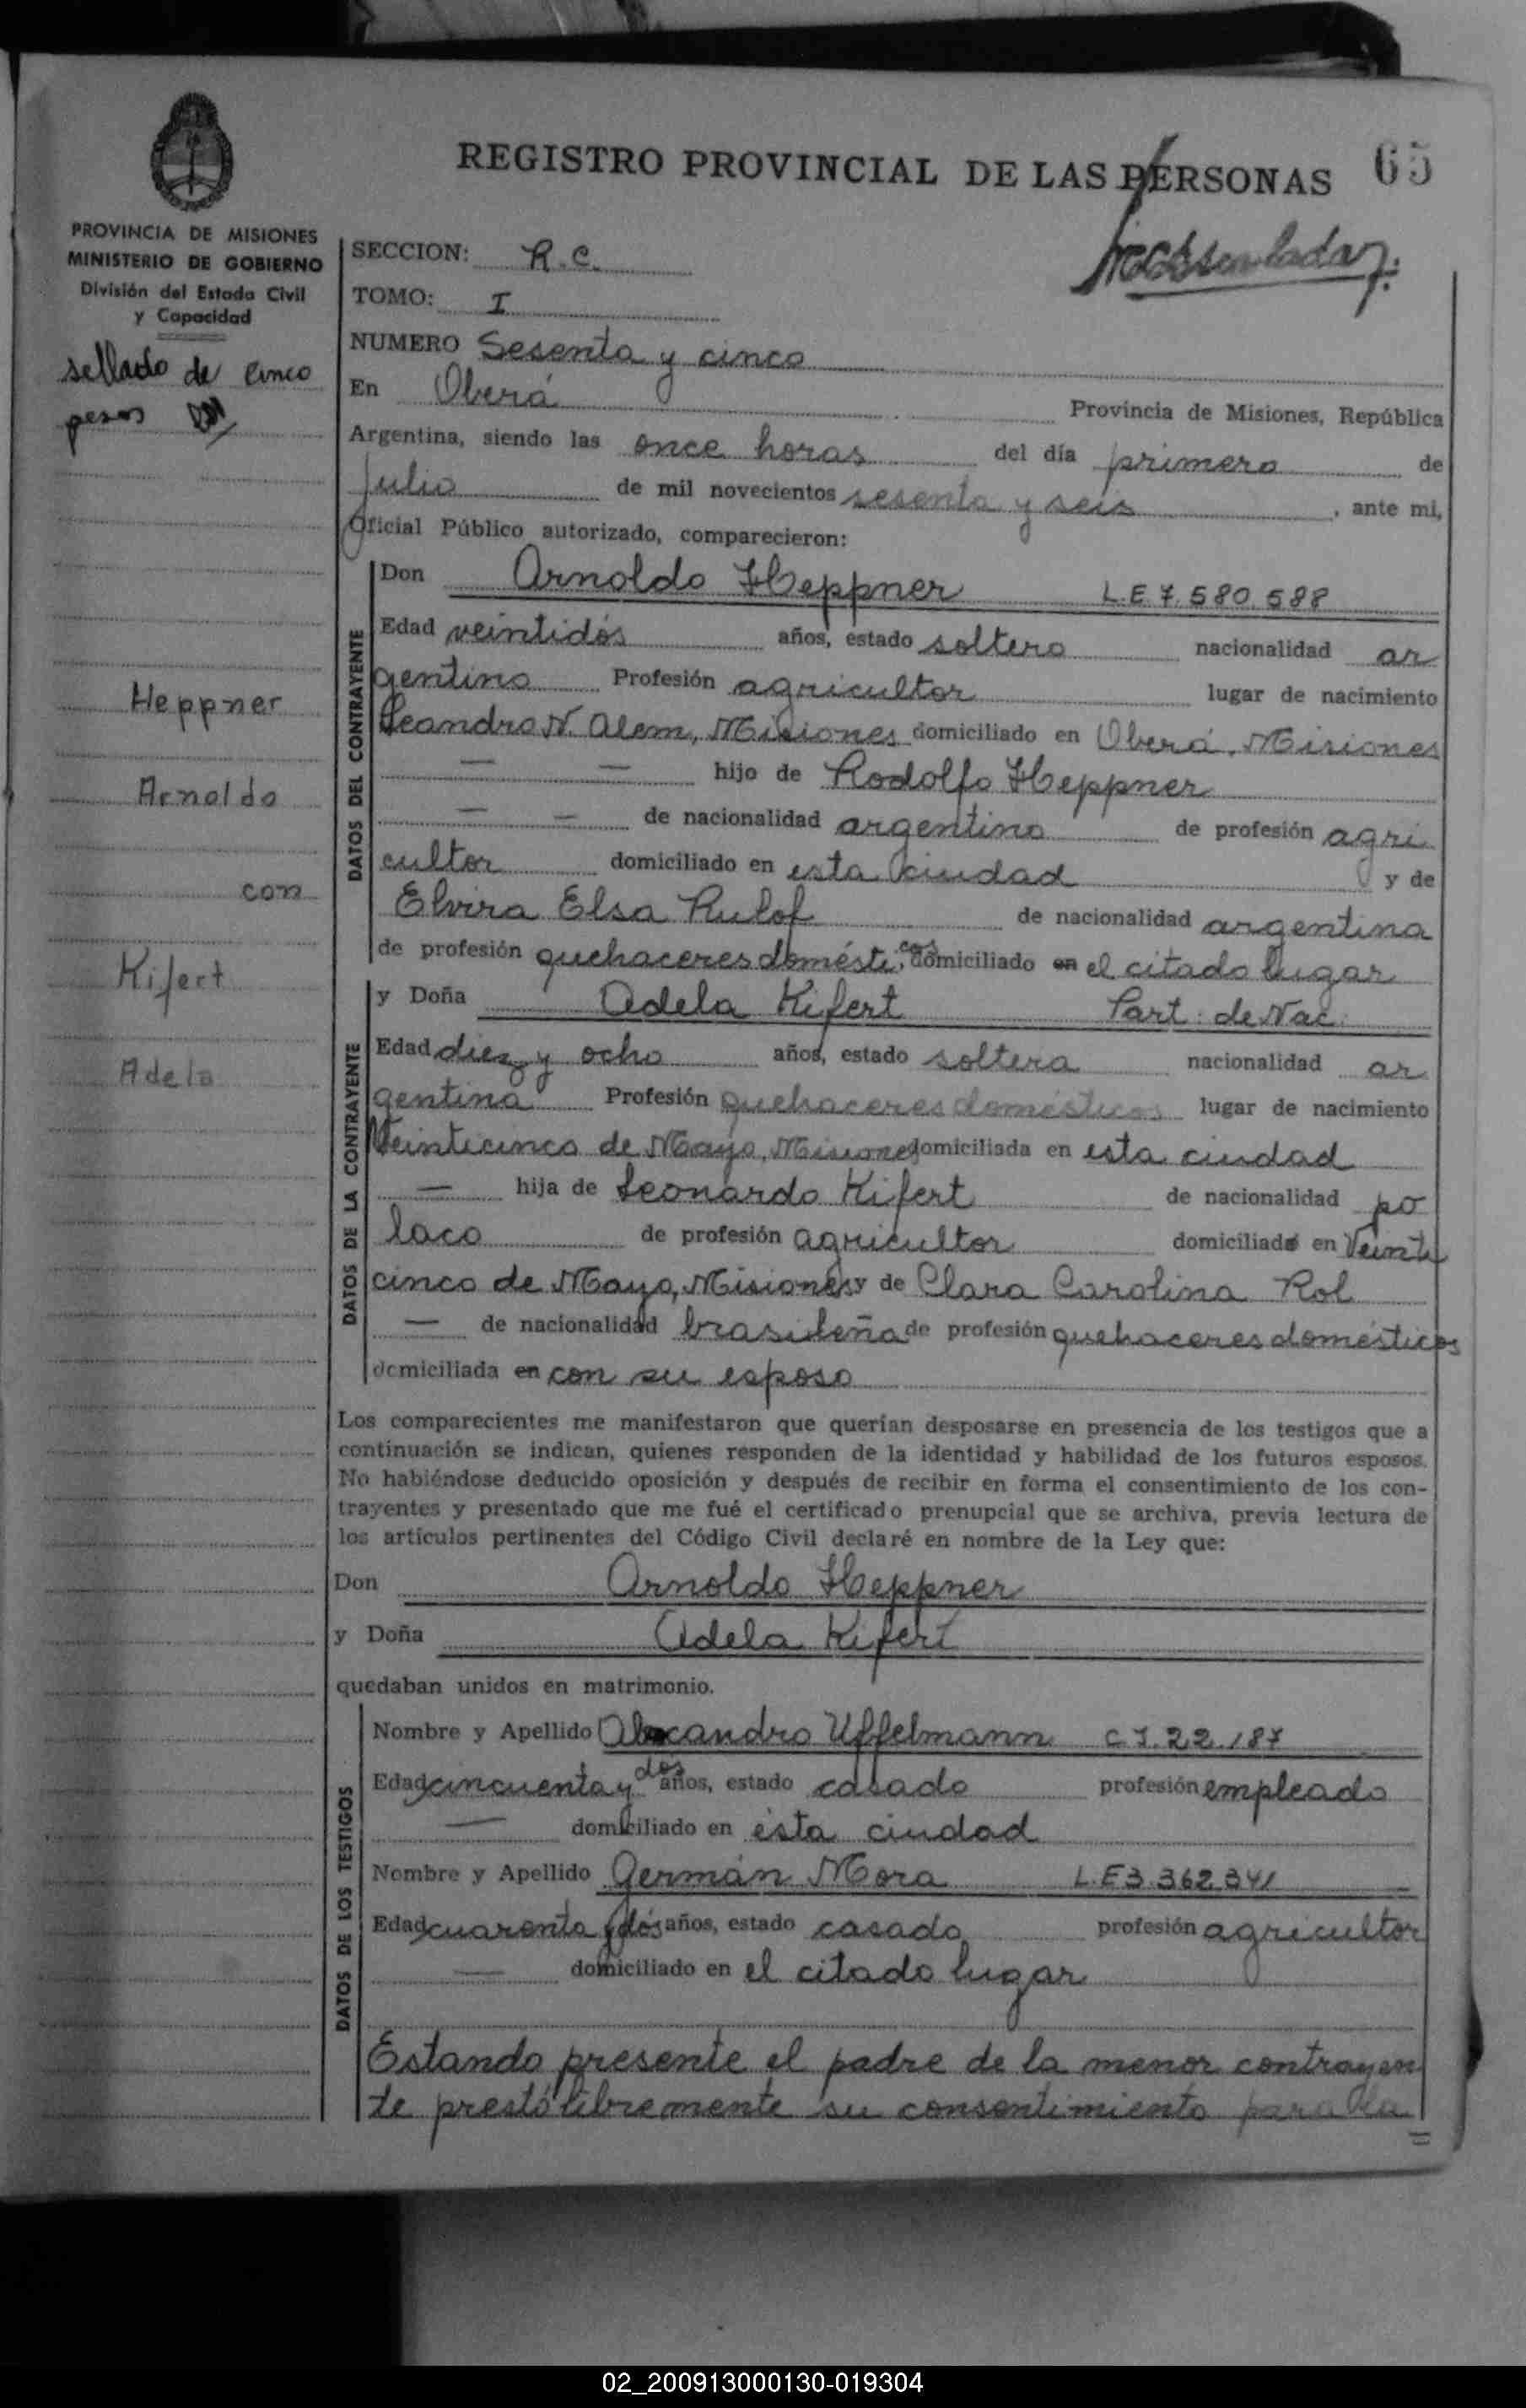 REGISTRO PROVINCIAL DE LAS PERSONAS 65
PROVINCIA DE MISIONES
MINISTERIO DE GOBIERNO
División del Estado Civil
y Capacidad
sellado de cinco
pesos
Heppner
Arnoldo
con
Kifert
Adela
SECCION: R.C.
TOMO: I
NUMERO Sesenta y cinco
En Oberá Provincia de Misiones, República
Argentina, siendo las once horas del día primero de
Julio de mil novecientos sesenta y seis, ante mi,
Oficial Público autorizado, comparecieron:
DATOS DEL CONTRAYENTE
Don Arnoldo Heppner L.E 7.580.588
Edad veintidós años, estado soltero nacionalidad ar
gentino Profesión agricultor lugar de nacimiento
Leandro N. Alem, Misiones domiciliado en Oberá, Misiones
— — hijo de Rodolfo Heppner
— — de nacionalidad argentino de profesión agri
cultor domiciliado en esta ciudad y de
Elvira Elsa Rulof de nacionalidad argentina
de profesión quehaceres domésticos, domiciliado en el citado lugar
DATOS DE LA CONTRAYENTE
y Doña Adela Kifert Part. de Nac.
Edad diez y ocho años, estado soltera nacionalidad ar
gentina Profesión quehaceres domésticos lugar de nacimiento
Veinticinco de Mayo, Misiones domiciliada en esta ciudad
— hija de Leonardo Kifert de nacionalidad po
laco de profesión agricultor domiciliado en Veinti
cinco de Mayo, Misiones y de Clara Carolina Rol
— de nacionalidad brasileña de profesión quehaceres domésticos
domiciliada en con su esposo
Los comparecientes me manifestaron que querían desposarse en presencia de los testigos que a
continuación se indican, quienes responden de la identidad y habilidad de los futuros esposos.
No habiéndose deducido oposición y después de recibir en forma el consentimiento de los con-
trayentes y presentado que me fué el certificado prenupcial que se archiva, previa lectura de
los artículos pertinentes del Código Civil declaré en nombre de la Ley que:
Don Arnoldo Heppner
y Doña Adela Kifert
quedaban unidos en matrimonio.
DATOS DE LOS TESTIGOS
Nombre y Apellido Alexandro Uffelmann C.I. 22.187
Edad cincuenta y dos años, estado casado profesión empleado
— domiciliado en ésta ciudad
Nombre y Apellido Germán Mora L.E 3.362.341
Edad cuarenta y dós años, estado casado profesión agricultor
— domiciliado en el citado lugar
Estando presente el padre de la menor contrayen
te prestó libremente su consentimiento para la
=
02_200913000130-019304